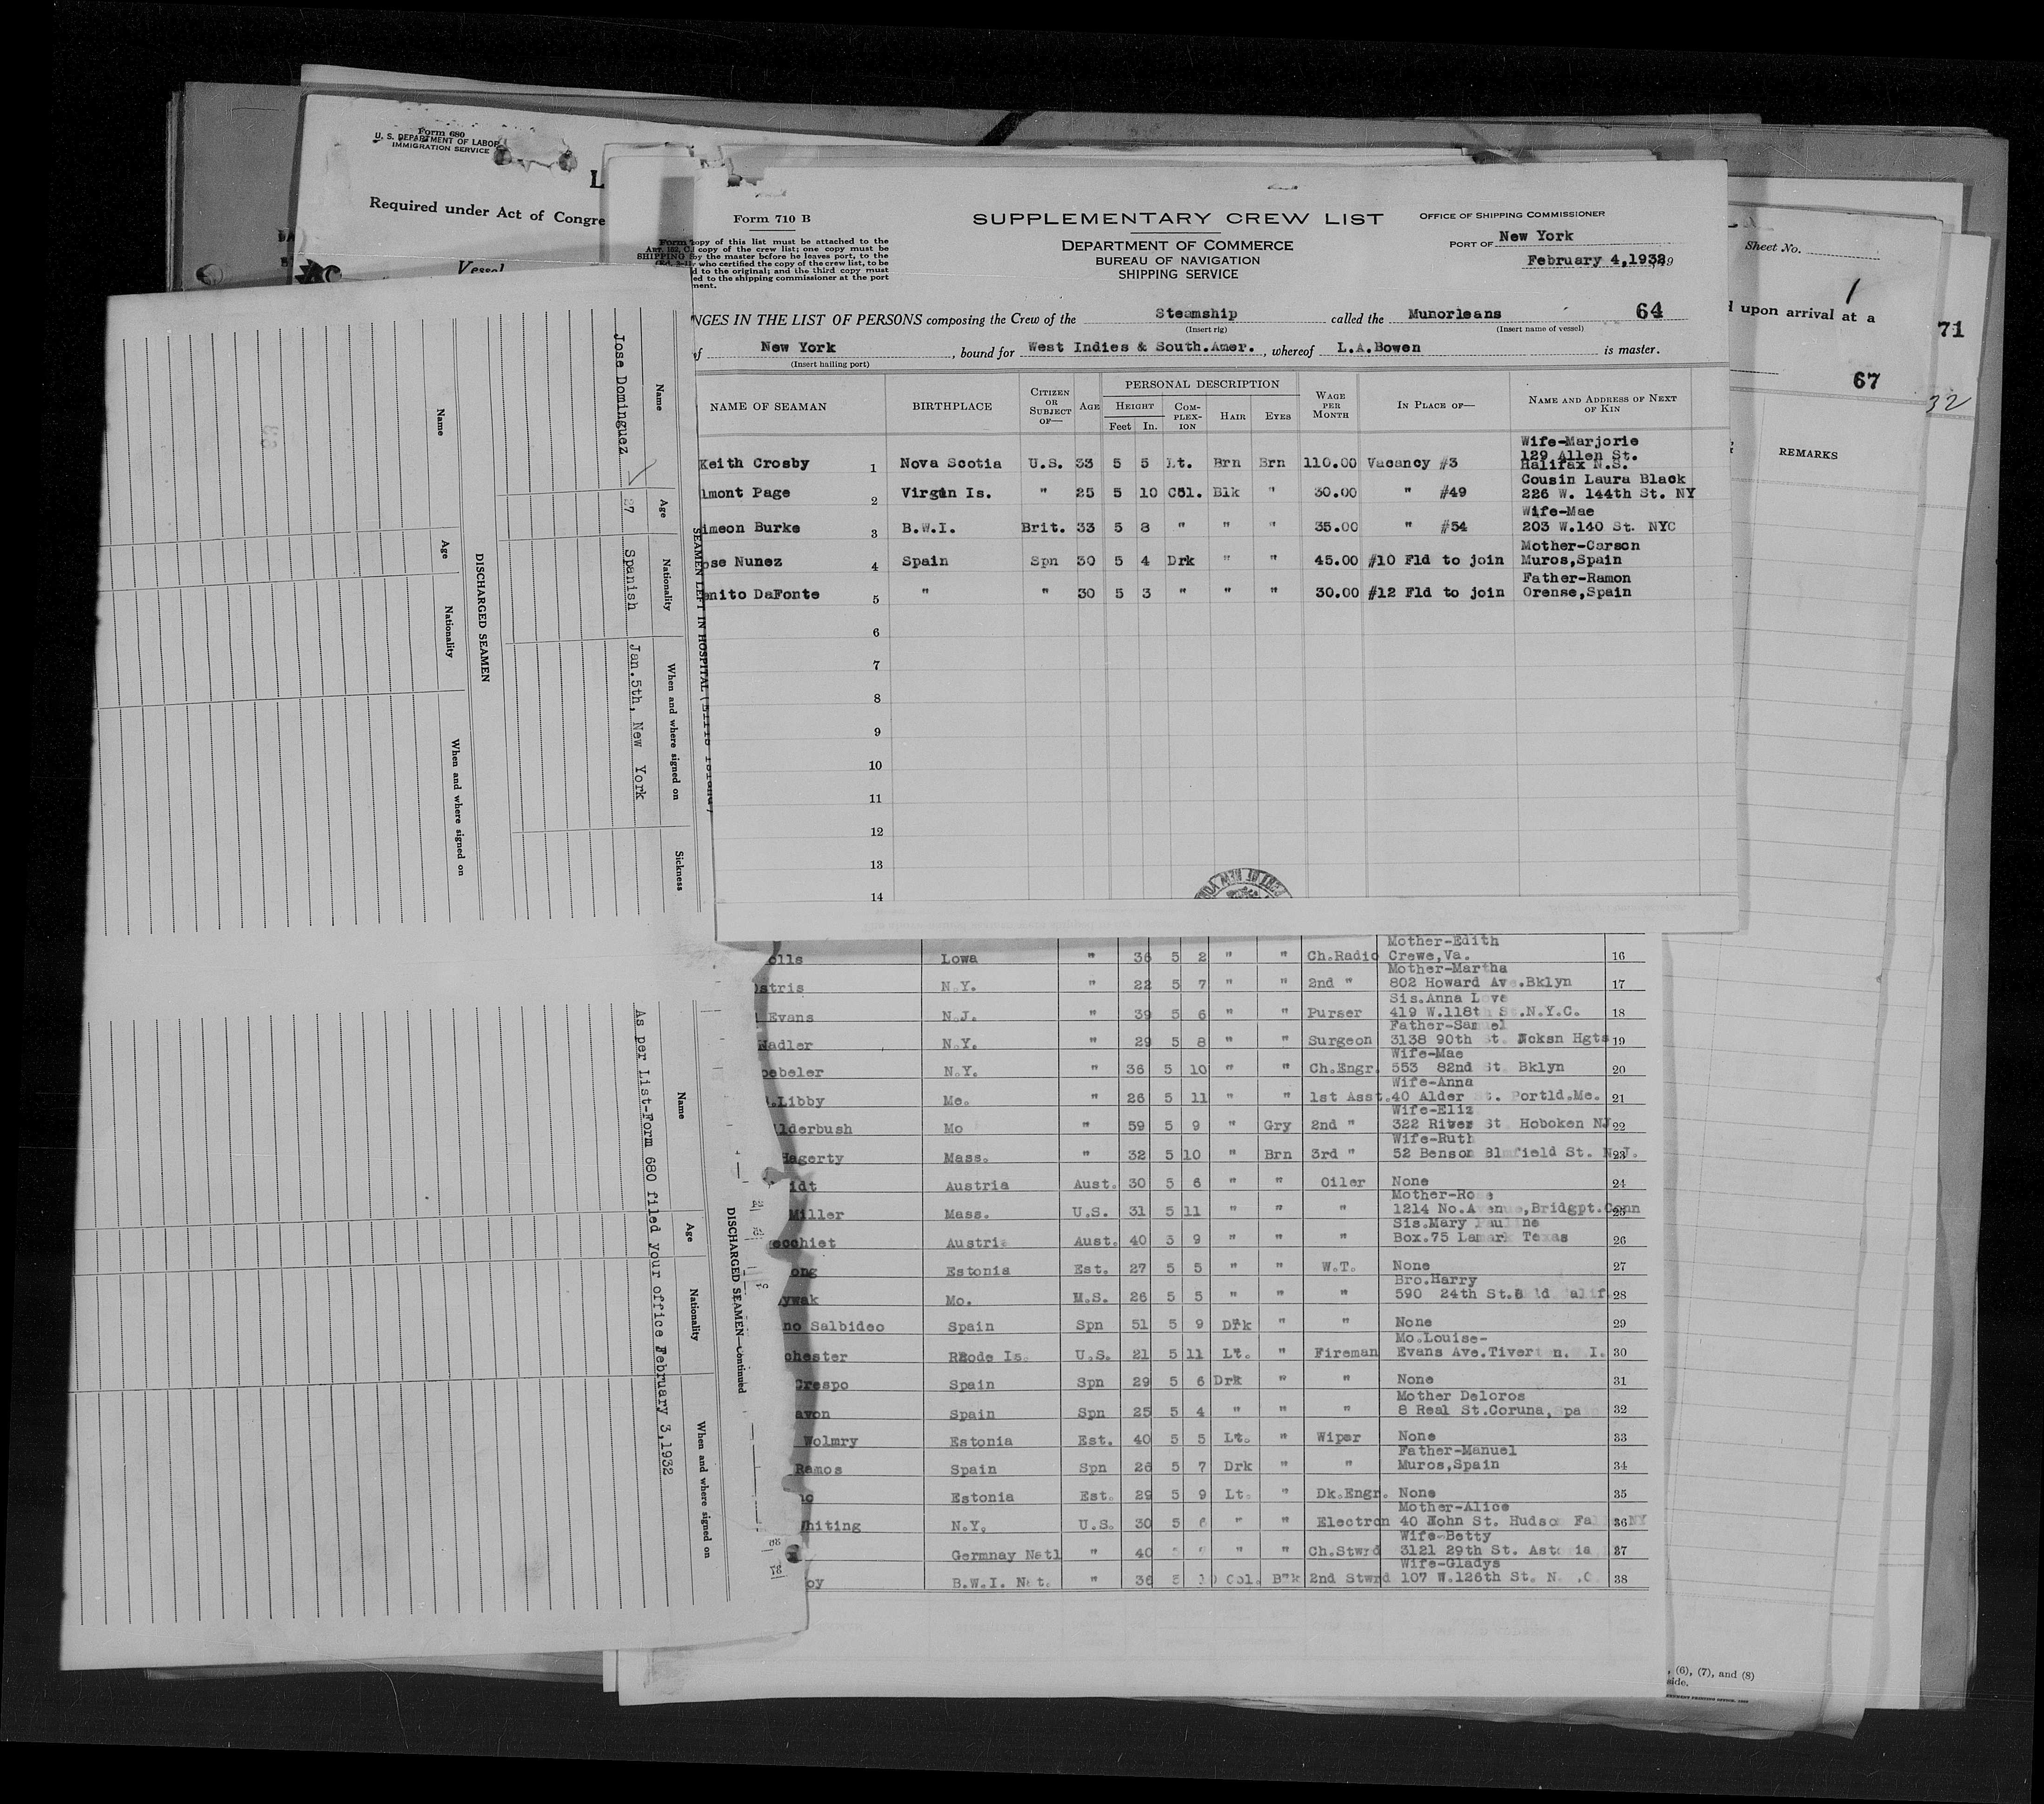 Form 680
U. S. DEPARTMENT OF LABOR
IMMIGRATION SERVICE
L
Required under Act of Congre
Vessel
Form 710 B
SUPPLEMENTARY CREW LIST
DEPARTMENT OF COMMERCE
BUREAU OF NAVIGATION
SHIPPING SERVICE
OFFICE OF SHIPPING COMMISSIONER
PORT OF New York
February 4,1932, 19
copy of this list must be attached to the
copy of the crew list; one copy must be
by the master before he leaves port, to the
who certified the copy of the crew list, to be
d to the original; and the third copy must
ed to the shipping commissioner at the port
ment.
NGES IN THE LIST OF PERSONS composing the Crew of the Steamship called the Munorleans 64
(Insert rig) (Insert name of vessel)
of New York, bound for West Indies & South.Amer., whereof L.A.Bowen is master.
(Insert hailing port)
NAME OF SEAMAN BIRTHPLACE CITIZEN OR SUBJECT OF— AGE PERSONAL DESCRIPTION HEIGHT Feet In. COMPLEXION HAIR EYES WAGE PER MONTH IN PLACE OF— NAME AND ADDRESS OF NEXT OF KIN
Wife-Marjorie
129 Allen St.
Keith Crosby 1 Nova Scotia U.S. 33 5 5 Lt. Brn Brn 110.00 Vacancy #3 Halifax N.S.
Cousin Laura Black
lmont Page 2 Virgin Is. " 25 5 10 Col. Blk " 30.00 " #49 226 W. 144th St. NY
Wife-Mae
imeon Burke 3 B.W.I. Brit. 33 5 8 " " " 35.00 " #54 203 W.140 St. NYC
Mother-Carson
ose Nunez 4 Spain Spn 30 5 4 Drk " " 45.00 #10 Fld to join Muros,Spain
Father-Ramon
enito DaFonte 5 " " 30 5 3 " " " 30.00 #12 Fld to join Orense,Spain
6
7
8
9
10
11
12
13
14
Sheet No.
1
d upon arrival at a
71
67
32
REMARKS
Mother-Edith
olls Lowa " 36 5 2 " " Ch.Radio Crewe,Va. 16
Mother-Martha
stris N.Y. " 22 5 7 " " 2nd " 802 Howard Ave.Bklyn 17
Sis.Anna Love
Evans N.J. " 39 5 6 " " Purser 419 W.118th St.N.Y.C. 18
Father-Samuel
Nadler N.Y. " 29 5 8 " " Surgeon 3138 90th St. Jcksn Hgts 19
Wife-Mae
oebeler N.Y. " 36 5 10 " " Ch.Engr. 553 82nd St Bklyn 20
Wife-Anna
.Libby Me. " 26 5 11 " " 1st Asst. 40 Alder St. Portld.Me. 21
Wife-Eliz
lderbush Mo " 59 5 9 " Gry 2nd " 322 River St Hoboken NJ 22
Wife-Ruth
Hagerty Mass. " 32 5 10 " Brn 3rd " 52 Benson Blmfield St. N.J. 23
idt Austria Aust. 30 5 6 " " Oiler None 24
Mother-Rose
Miller Mass. U.S. 31 5 11 " " " 1214 No.Avenue,Bridgpt.Conn 25
Sis.Mary Pauline
cchiet Austria Aust. 40 5 9 " " " Box.75 Lamark Texas 26
ong Estonia Est. 27 5 5 " " W.T. None 27
Bro.Harry
ywak Mo. U.S. 26 5 5 " " " 590 24th St. 28
no Salbideo Spain Spn 51 5 9 Drk " " None 29
Mo.Louise-
chester Rhode Is. U.S. 21 5 11 Lt. " Fireman Evans Ave.Tiverton. R.I. 30
Crespo Spain Spn 29 5 6 Drk " " None 31
Mother Deloros
avon Spain Spn 25 5 4 " " " 8 Real St.Coruna,Spa 32
Wolmry Estonia Est. 40 5 5 Lt. " Wiper None 33
Father-Manuel
Ramos Spain Spn 26 5 7 Drk " " Muros,Spain 34
Estonia Est. 29 5 9 Lt. " Dk.Engr. None 35
Mother-Alice
Whiting N.Y. U.S. 30 5 6 " " Electron 40 John St. Hudson Fal NY 36
Wife-Betty
Germnay Natl " 40 " " Ch.Stwrd 3121 29th St. Astoria 37
Wife-Gladys
oy B.W.I. Nat. " 36 5 10 Col. Blk 2nd Stwrd 107 W.126th St. N. .C. 38
, (6), (7), and (8)
side.
SEAMEN LEFT IN HOSPITAL (Ellis Island)
Name Age Nationality When and where signed on Sickness
Jose Dominguez 37 Spanish Jan.5th, New York
DISCHARGED SEAMEN
Name Age Nationality When and where signed on
DISCHARGED SEAMEN—Continued
Name Age Nationality When and where signed on
As per List-Form 680 filed your office February 3,1932